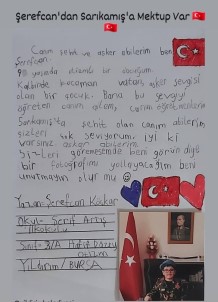 Şerefcan'dan Sarıkamış'a Mektup Var 🇹🇷
🇹🇷
Canım şehit ve asker abilerim ben
Şerefcan.
yaşında bir çocuğum.
Kalbinde kocaman vatan, asker sevgisi
olan bir çocuk. Bana bu sevgiyi
öğreten canım ailem, canım öğretmenlerim
Sarıkamış'ta şehit olan canım abilerim
sizleri çok seviyorum. iyi ki
varsınız asker abilerim.
Sizleri göremesemde beni görün diye
bir fotoğrafımı yollayacağım beni
unutmayın olur mu
Yazan: Şerefcan
Okul: Şerif Artış
İlkokulu
Sınıf: 3/A
YILdırım/BURSA